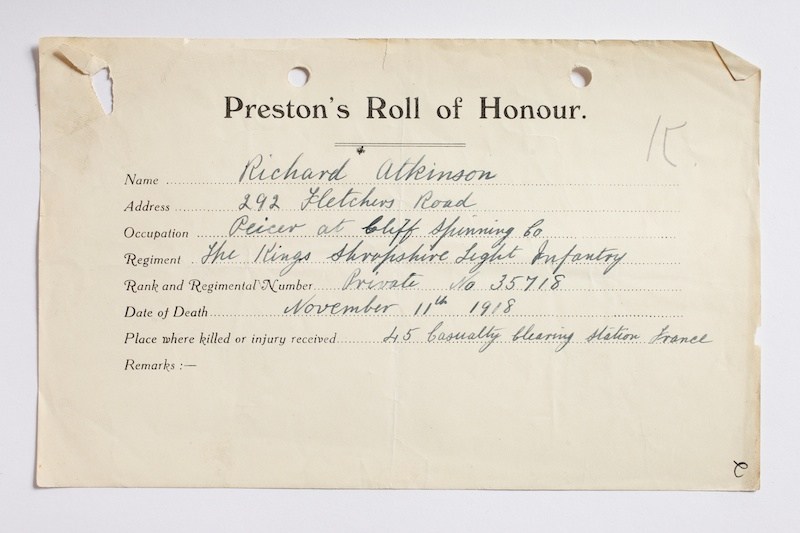 Preston's Roll of Honour.
Name Richard Atkinson
Address 292 Fletchers Road
Occupation Peicer at Cliff Spinning Co
Regiment The Kings Shropshire Light Infantry
Rank and Regimental Number Private No 35718
Date of Death November 11th 1918
Place where killed or injury received 45 Casualty Clearing Station France
Remarks :—